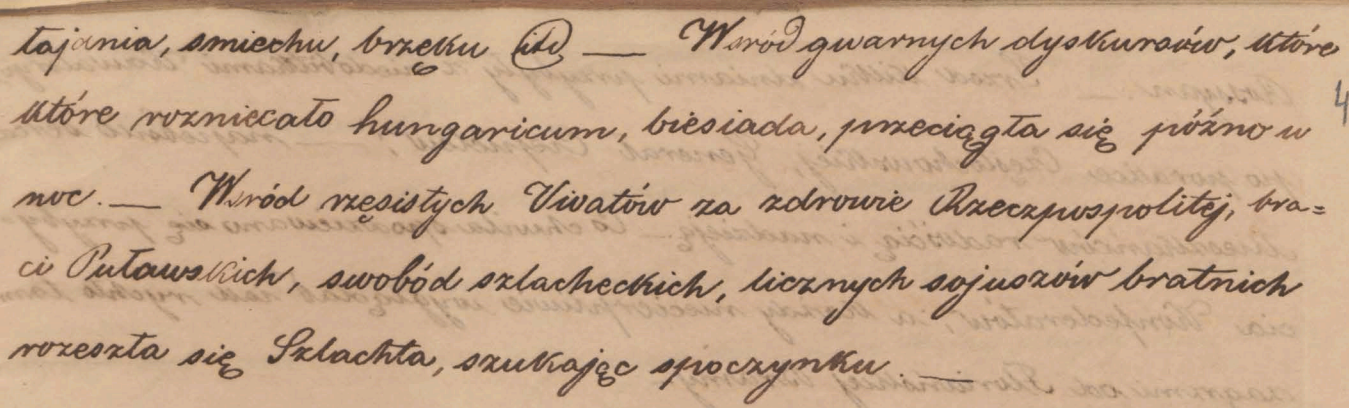 łajania, smiechu, brzęku itd — Wsród gwarnych dyskursów, które
które rozniecało hungaricum, biesiada, przeciągła się późno w
noc. — Wsród rzęsistych Vivatów za zdrowie Rzeczpospolitej, bra=
ci Puławskich, swobód szlacheckich, licznych sojuszów bratnich
rozeszła się Szlachta, szukając spoczynku. —
4